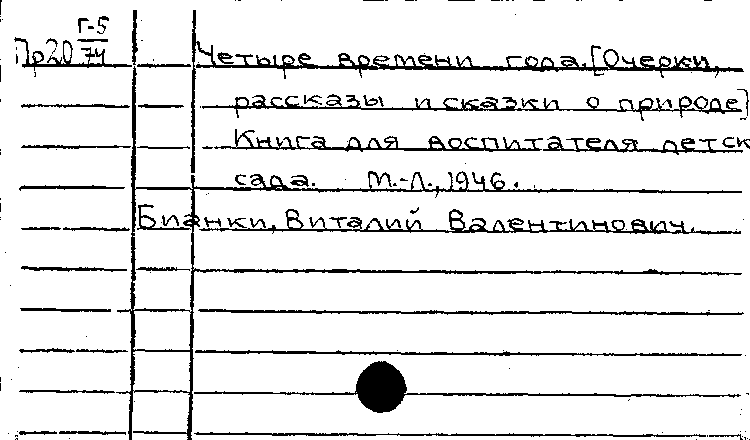 Г-5
Пр20 74
Четыре времени года. [Очерки,
рассказы и сказки о природе]
Книга для воспитателя детск
сада. М.-Л., 1946.
Бианки, Виталий Валентинович.